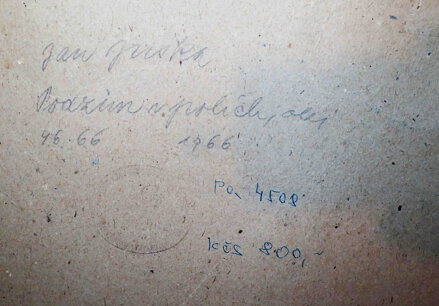 Jan Juska
Podzim v polích, olej
46.66 1966
Po. 4508
Kčs 800,-